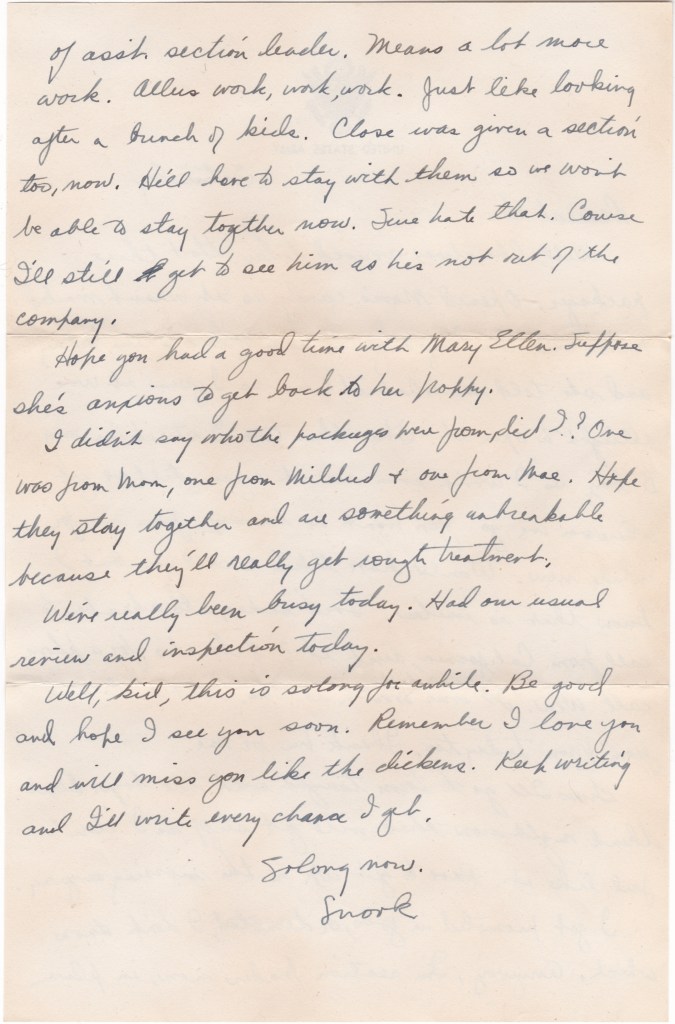 of ass't section leader. Means a lot more
work. Allus work, work, work. Just like looking
after a bunch of kids. Close was given a section
too, now. He'll have to stay with them so we won't
be able to stay together now. Sure hate that. Course
I'll still get to see him as he's not out of the
company.
Hope you had a good time with Mary Ellen. Suppose
she's anxious to get back to her pappy.
I didn't say who the packages were from, did I? One
was from Mom, one from Mildred & one from Mae. Hope
they stay together and are something unbreakable
because they'll really get rough treatment.
We've really been busy today. Had our usual
review and inspection today.
Well, kid, this is solong for awhile. Be good
and hope I see you soon. Remember I love you
and will miss you like the dickens. Keep writing
and I'll write every chance I get.
Solong now.
Snork